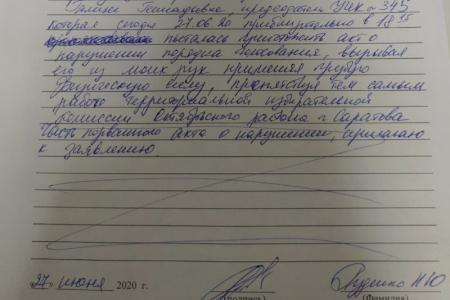 Галине Геннадьевне, председателю УИК № 345
которая сегодня 27.06.20 приблизительно в 18 35
пыталась уничтожить акт о
нарушении порядка голосования, вырывая
его из моих рук применяя грубую
физическую силу, препятствуя тем самым
работе территориальной избирательной
комиссии Октябрьского района г. Саратова
Часть порванного акта о нарушении, прилагаю
к заявлению.
«27» июня 2020 г.
Руденко Н Ю
(подпись) (Фамилия)